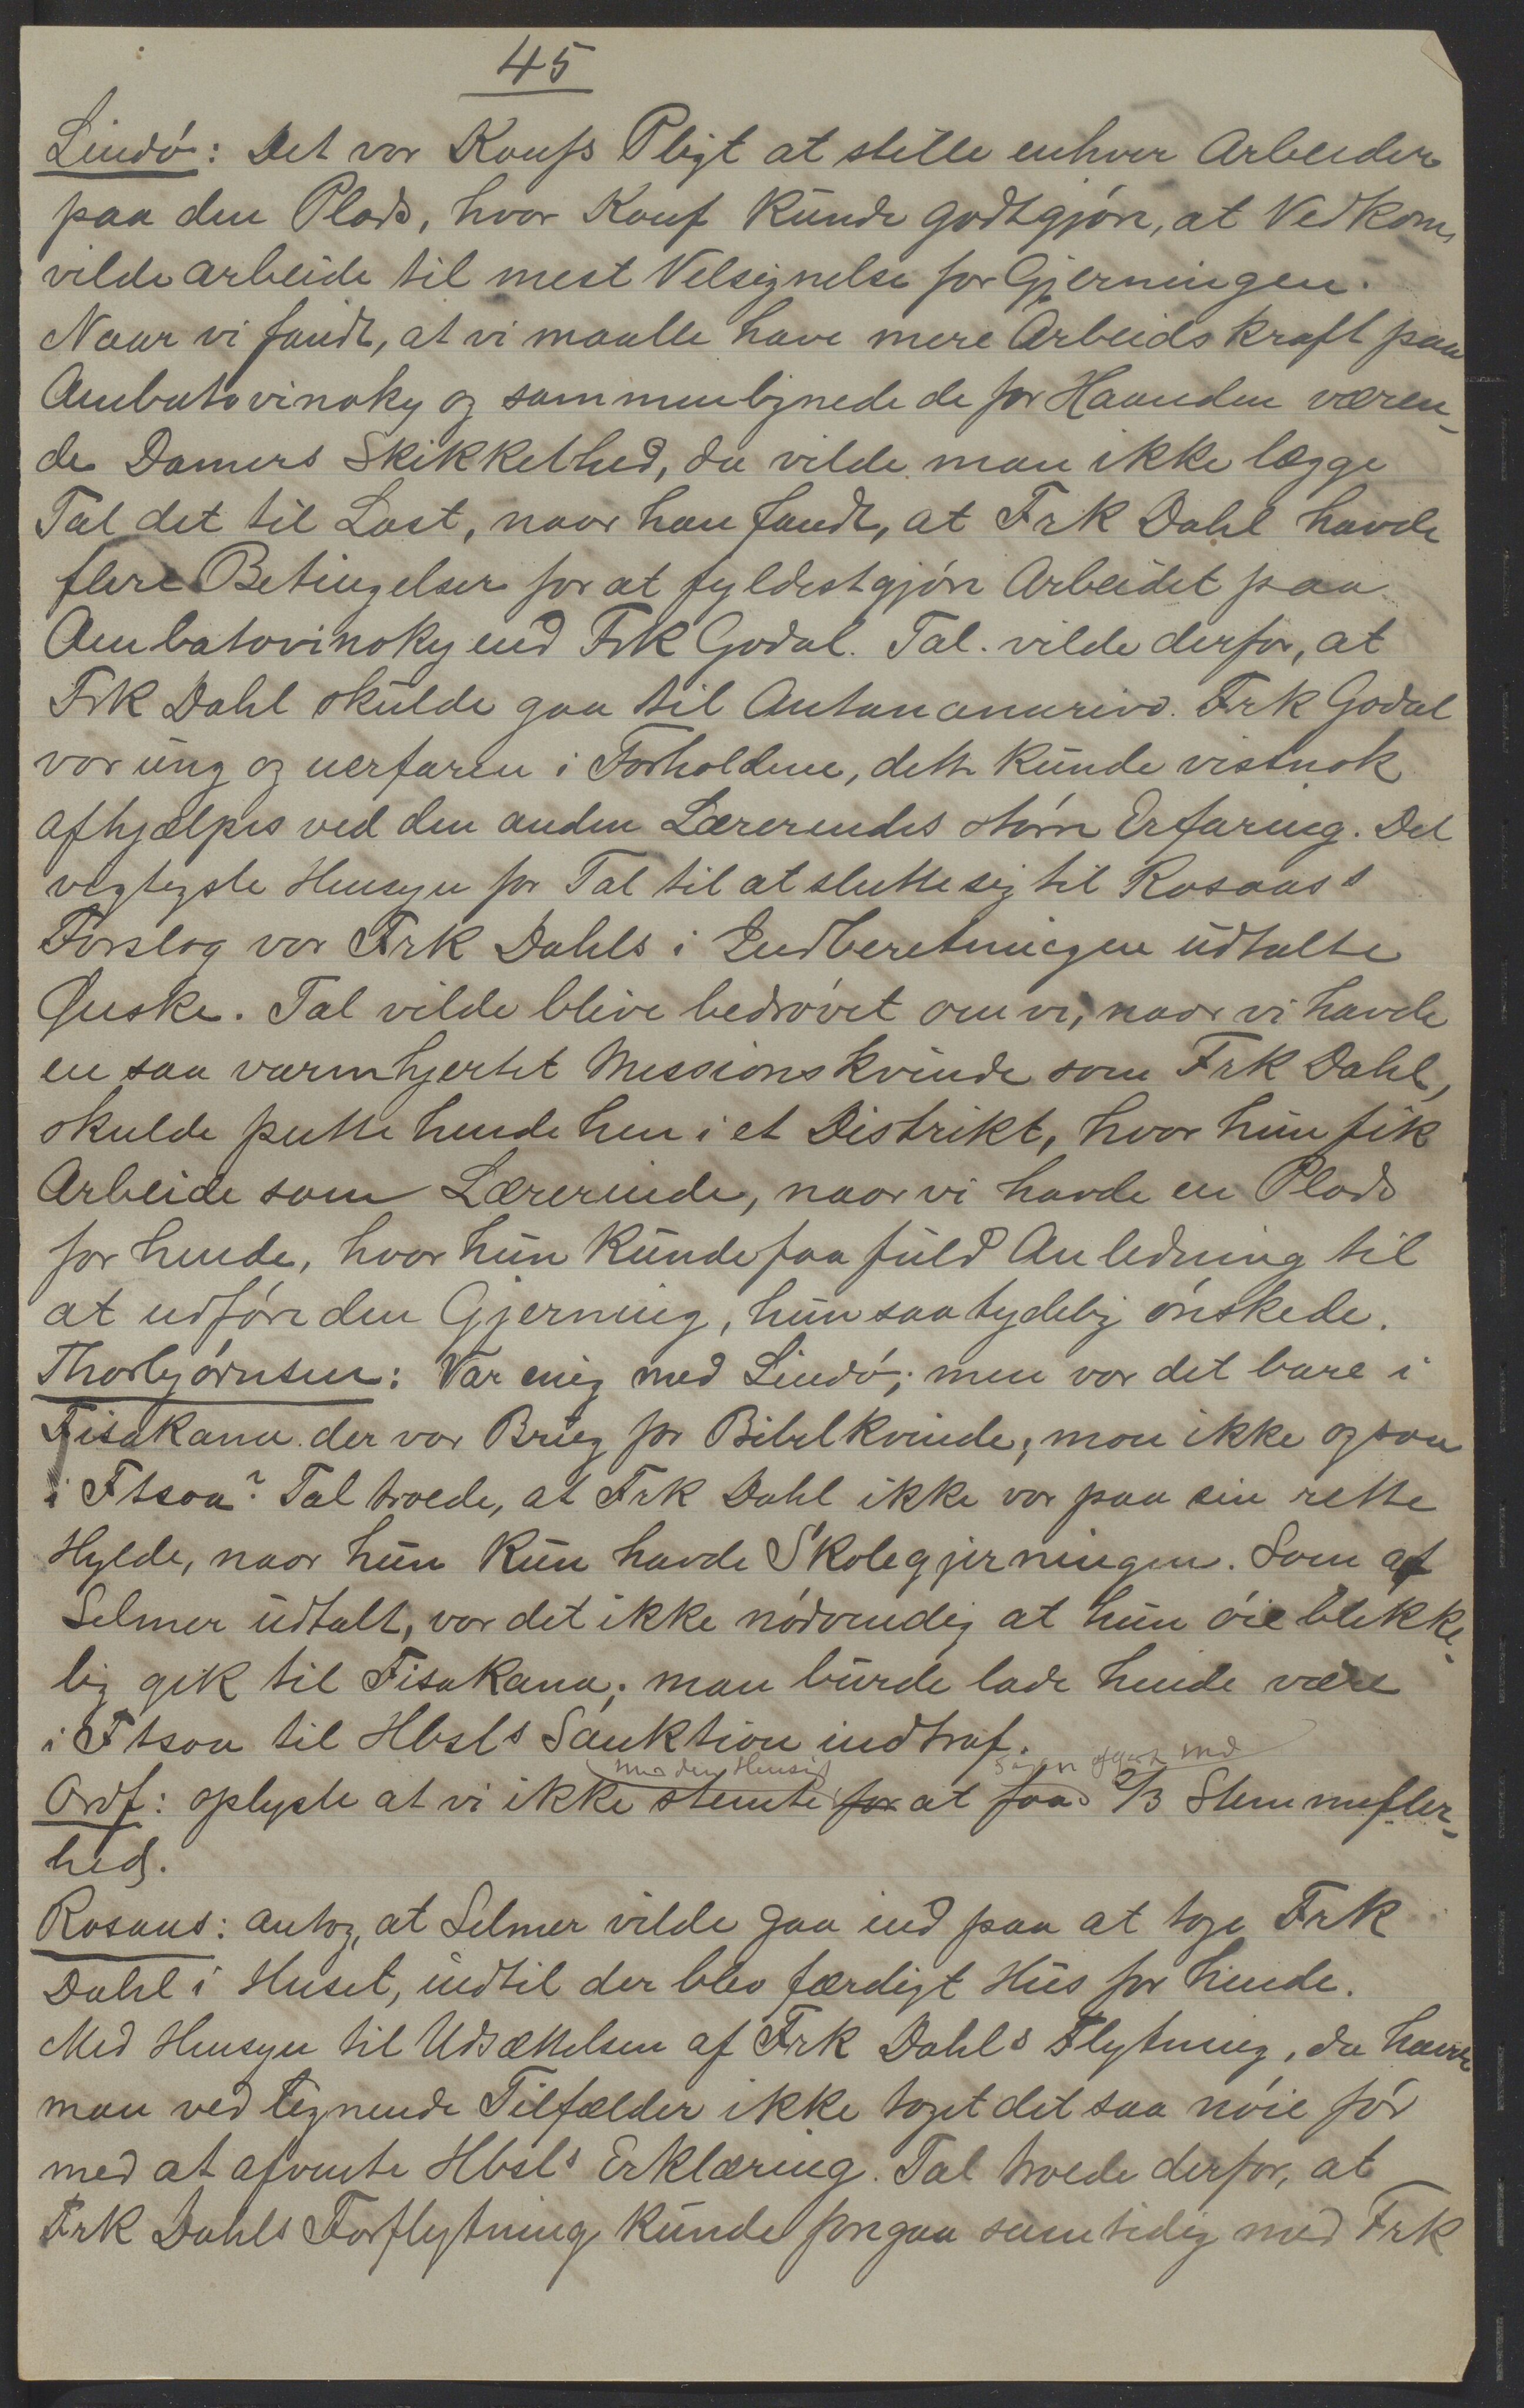 45
Lindø: Det var Konfs Pligt at stille enhver Arbeider
paa den Plads, hvor Konf kunde godtgjøre, at Vedkom.
vilde arbeide til mest Velsignelse for Gjerningen.
Naar vi fandt, at vi maatte have mere Arbeidskraft paa
Ambatovinaky og sammenlignede de for Haanden væren-
de Damers Skikkethed, da vilde man ikke lægge
Tal det til Last, naar han fandt, at Frk Dahl havde
flere Betingelser for at fyldestgjøre Arbeidet paa
Ambatovinaky end Frk Godal. Tal. vilde derfor, at
Frk Dahl skulde gaa til Antananarivo. Frk Godal
var ung og uerfaren i Forholdene, dette kunde vistnok
afhjælpes ved den anden Lærerindes større Erfaring. Det
vigtigste Hensyn for Tal til at slutte sig til Rosaas's
Forslag var Frk Dahls i Indberetningen udtalte
Ønske. Tal vilde blive bedrøvet om vi, naar vi havde
en saa varmhjertet Missionskvinde som Frk Dahl,
skulde putte hende hen i et Distrikt, hvor hun fik
Arbeide som Lærerinde, naar vi havde en Plads
for hende, hvor hun kunde faa fuld Anledning til
at udføre den Gjerning, hun saa tydelig ønskede.
Thorbjørnsen: Var enig med Lindø; men var det bare i
Fisakana der var Brug for Bibelkvinde; mon ikke ogsaa
i Ftsoa? Tal troede, at Frk Dahl ikke var paa sin rette
Hylde, naar hun kun havde Skolegjerningen. Som af
Selmer udtalt, var det ikke nødvendig at hun øieblikke-
lig gik til Fisakana; man burde lade hende være
i Ftsoa til Hbsls Sanktion indtraf.
med den Hensigt
Ordf: oplyste at vi ikke stemte for at faa 2/3 Stemmefler-
hed.
Rosaas: antog, at Selmer vilde gaa ind paa at tage Frk
Dahl i Huset, indtil der blev færdigt Hus for hende.
Med Hensyn til Udsættelsen af Frk Dahls Flytning, da havde
man ved lignende Tilfælder ikke taget det saa nøie før
med at afvente Hbsls Erklæring. Tal troede derfor, at
Frk Dahls Forflytning kunde foregaa samtidig med Frk